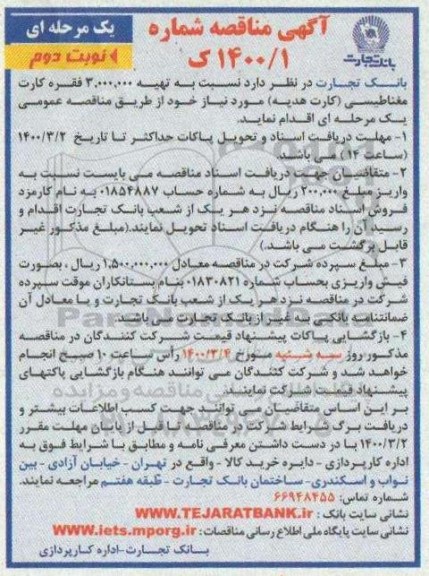 آگهی مناقصه شماره
۱۴۰۰/۱ ک
یک مرحله ای
نوبت دوم
بانک تجارت
بانک تجارت در نظر دارد نسبت به تهیه ۳,۰۰۰,۰۰۰ فقره کارت
مغناطیسی (کارت هدیه) مورد نیاز خود از طریق مناقصه عمومی
یک مرحله ای اقدام نماید.
۱- مهلت دریافت اسناد و تحویل پاکات حداکثر تا تاریخ ۱۴۰۰/۳/۲
(ساعت ۱۴) می باشد.
۲- متقاضیان جهت دریافت اسناد مناقصه می بایست نسبت به
واریز مبلغ ۲۰۰,۰۰۰ ریال به شماره حساب ۰۱۸۵۴۸۸۷ به نام کارمزد
فروش اسناد مناقصه نزد هر یک از شعب بانک تجارت اقدام و
رسید آن را هنگام دریافت اسناد تحویل نمایند.(مبلغ مذکور غیر
قابل برگشت می باشد.)
۳- مبلغ سپرده شرکت در مناقصه معادل ۱,۵۰۰,۰۰۰,۰۰۰ ریال ، بصورت
فیش واریزی بحساب شماره ۰۱۸۳۰۸۲۱ بنام بستانکاران موقت سپرده
شرکت در مناقصه نزد هر یک از شعب بانک تجارت و یا معادل آن
ضمانتنامه بانکی به غیر از بانک تجارت می باشد.
۴- بازگشایی پاکات پیشنهاد قیمت شرکت کنندگان در مناقصه
مذکور روز سه شنبه مورخ ۱۴۰۰/۳/۴ رأس ساعت ۱۰ صبح انجام
خواهد شد و شرکت کنندگان می توانند هنگام بازگشایی پاکتهای
پیشنهاد قیمت شرکت نمایند.
بر این اساس متقاضیان می توانند جهت کسب اطلاعات بیشتر و
دریافت برگ شرایط شرکت در مناقصه تا قبل از پایان مهلت مقرر
۱۴۰۰/۳/۲ با در دست داشتن معرفی نامه و مطابق با شرایط فوق به
اداره کارپردازی - دایره خرید کالا - واقع در تهران - خیابان آزادی - بین
نواب و اسکندری- ساختمان بانک تجارت - طبقه هفتم مراجعه نمایند.
شماره تماس: ۶۶۹۴۸۴۵۵
نشانی سایت بانک : WWW.TEJARATBANK.ir
نشانی سایت پایگاه ملی اطلاع رسانی مناقصات : WWW.iets.mporg.ir
بانک تجارت-اداره کارپردازی